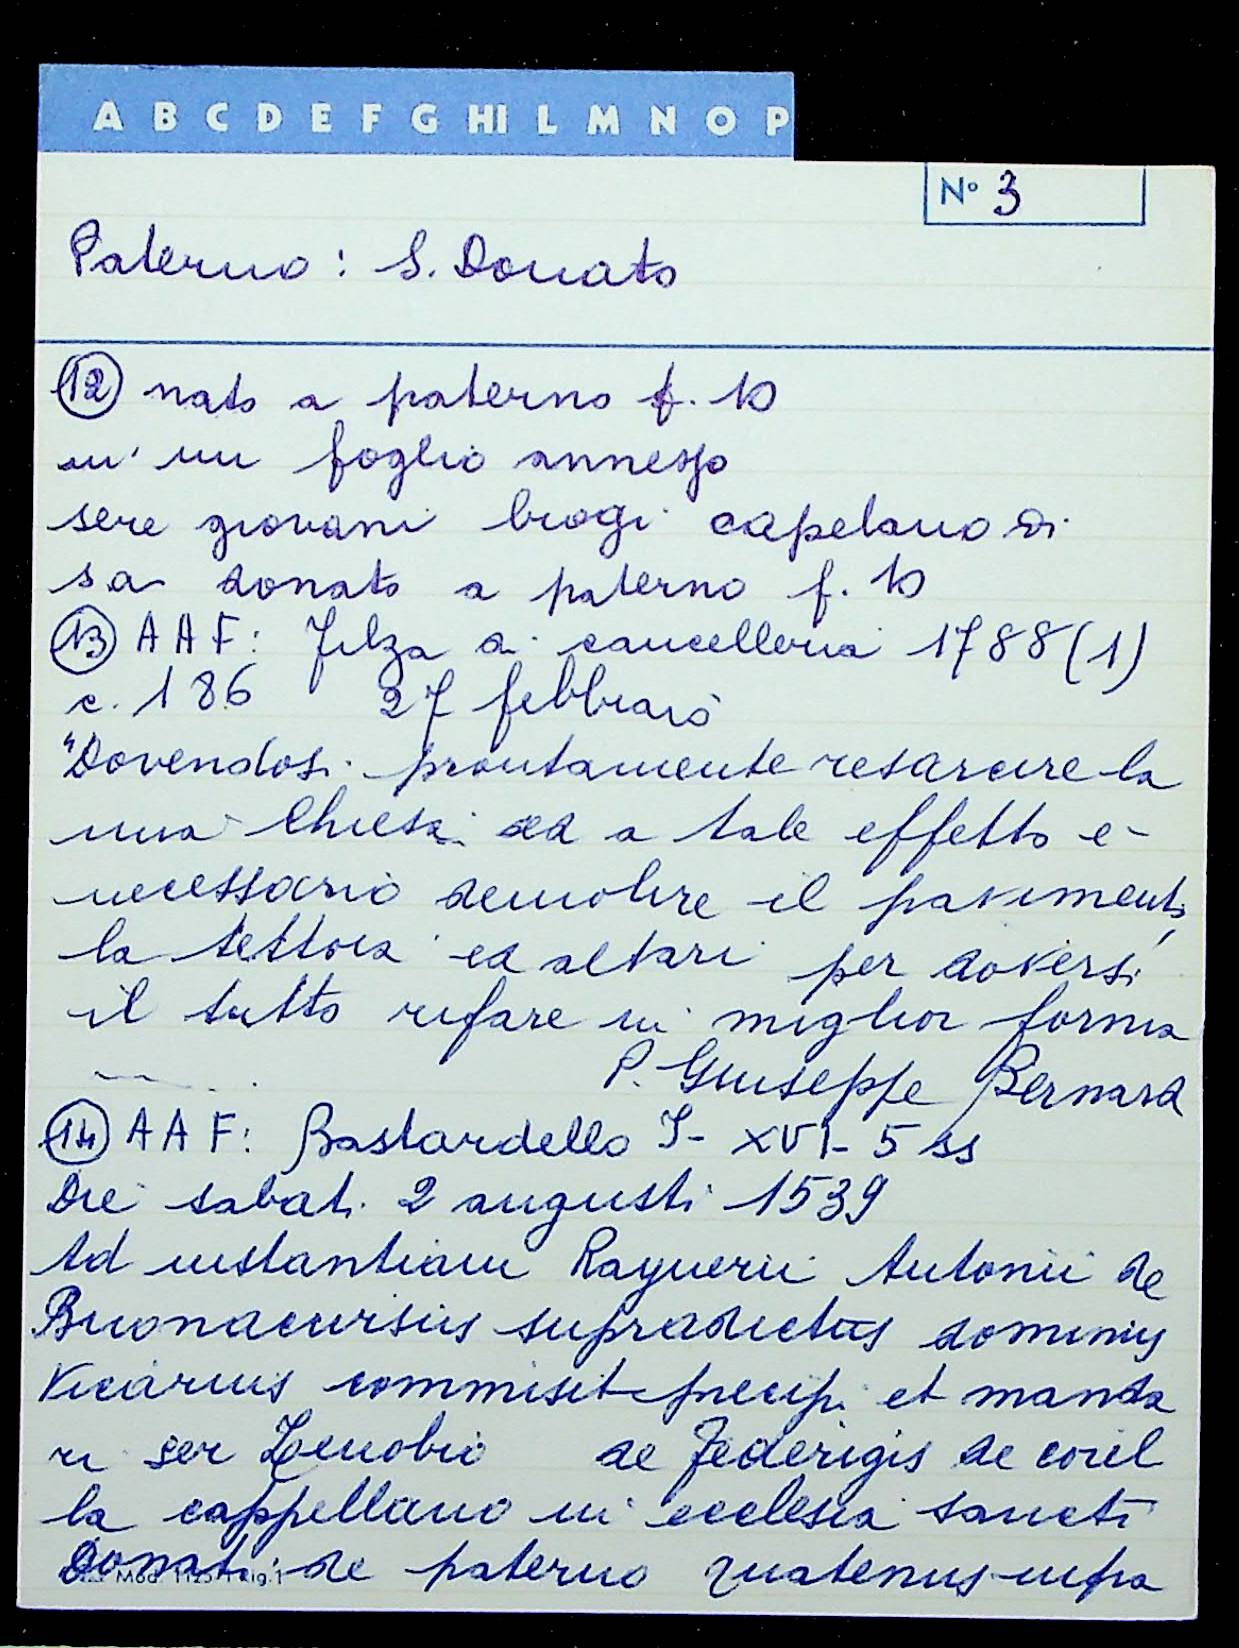 A B C D E F G HI L M N O P
N° 3
Paterno: S. Donato
(12) nato a paterno f. 10
in un foglio annesso
sere giovani brogi capelano di
sa donato a paterno f. 10
(13) AAF: Filza di cancelleria 1788 (1)
c. 186 27 febbraio
"Dovendosi prontamente resarcire la
mia Chiesa ed a tale effetto è
necessario demolire il pavimento,
la tettoia ed altari per doversi
il tutto rifare in miglior forma
P. Giuseppe Bernard
(14) AAF: Bastardello I- XVI- 5 ss
Die sabati 2 augusti 1539
Ad instantiam Raynerii Antonii de
Buonacursiis supradictus dominus
Vicarius commisit precipi et manda
ri ser Zenobio de Federigis de coiel
la cappellano in ecclesia sancti
Donati de paterno quatenus infra